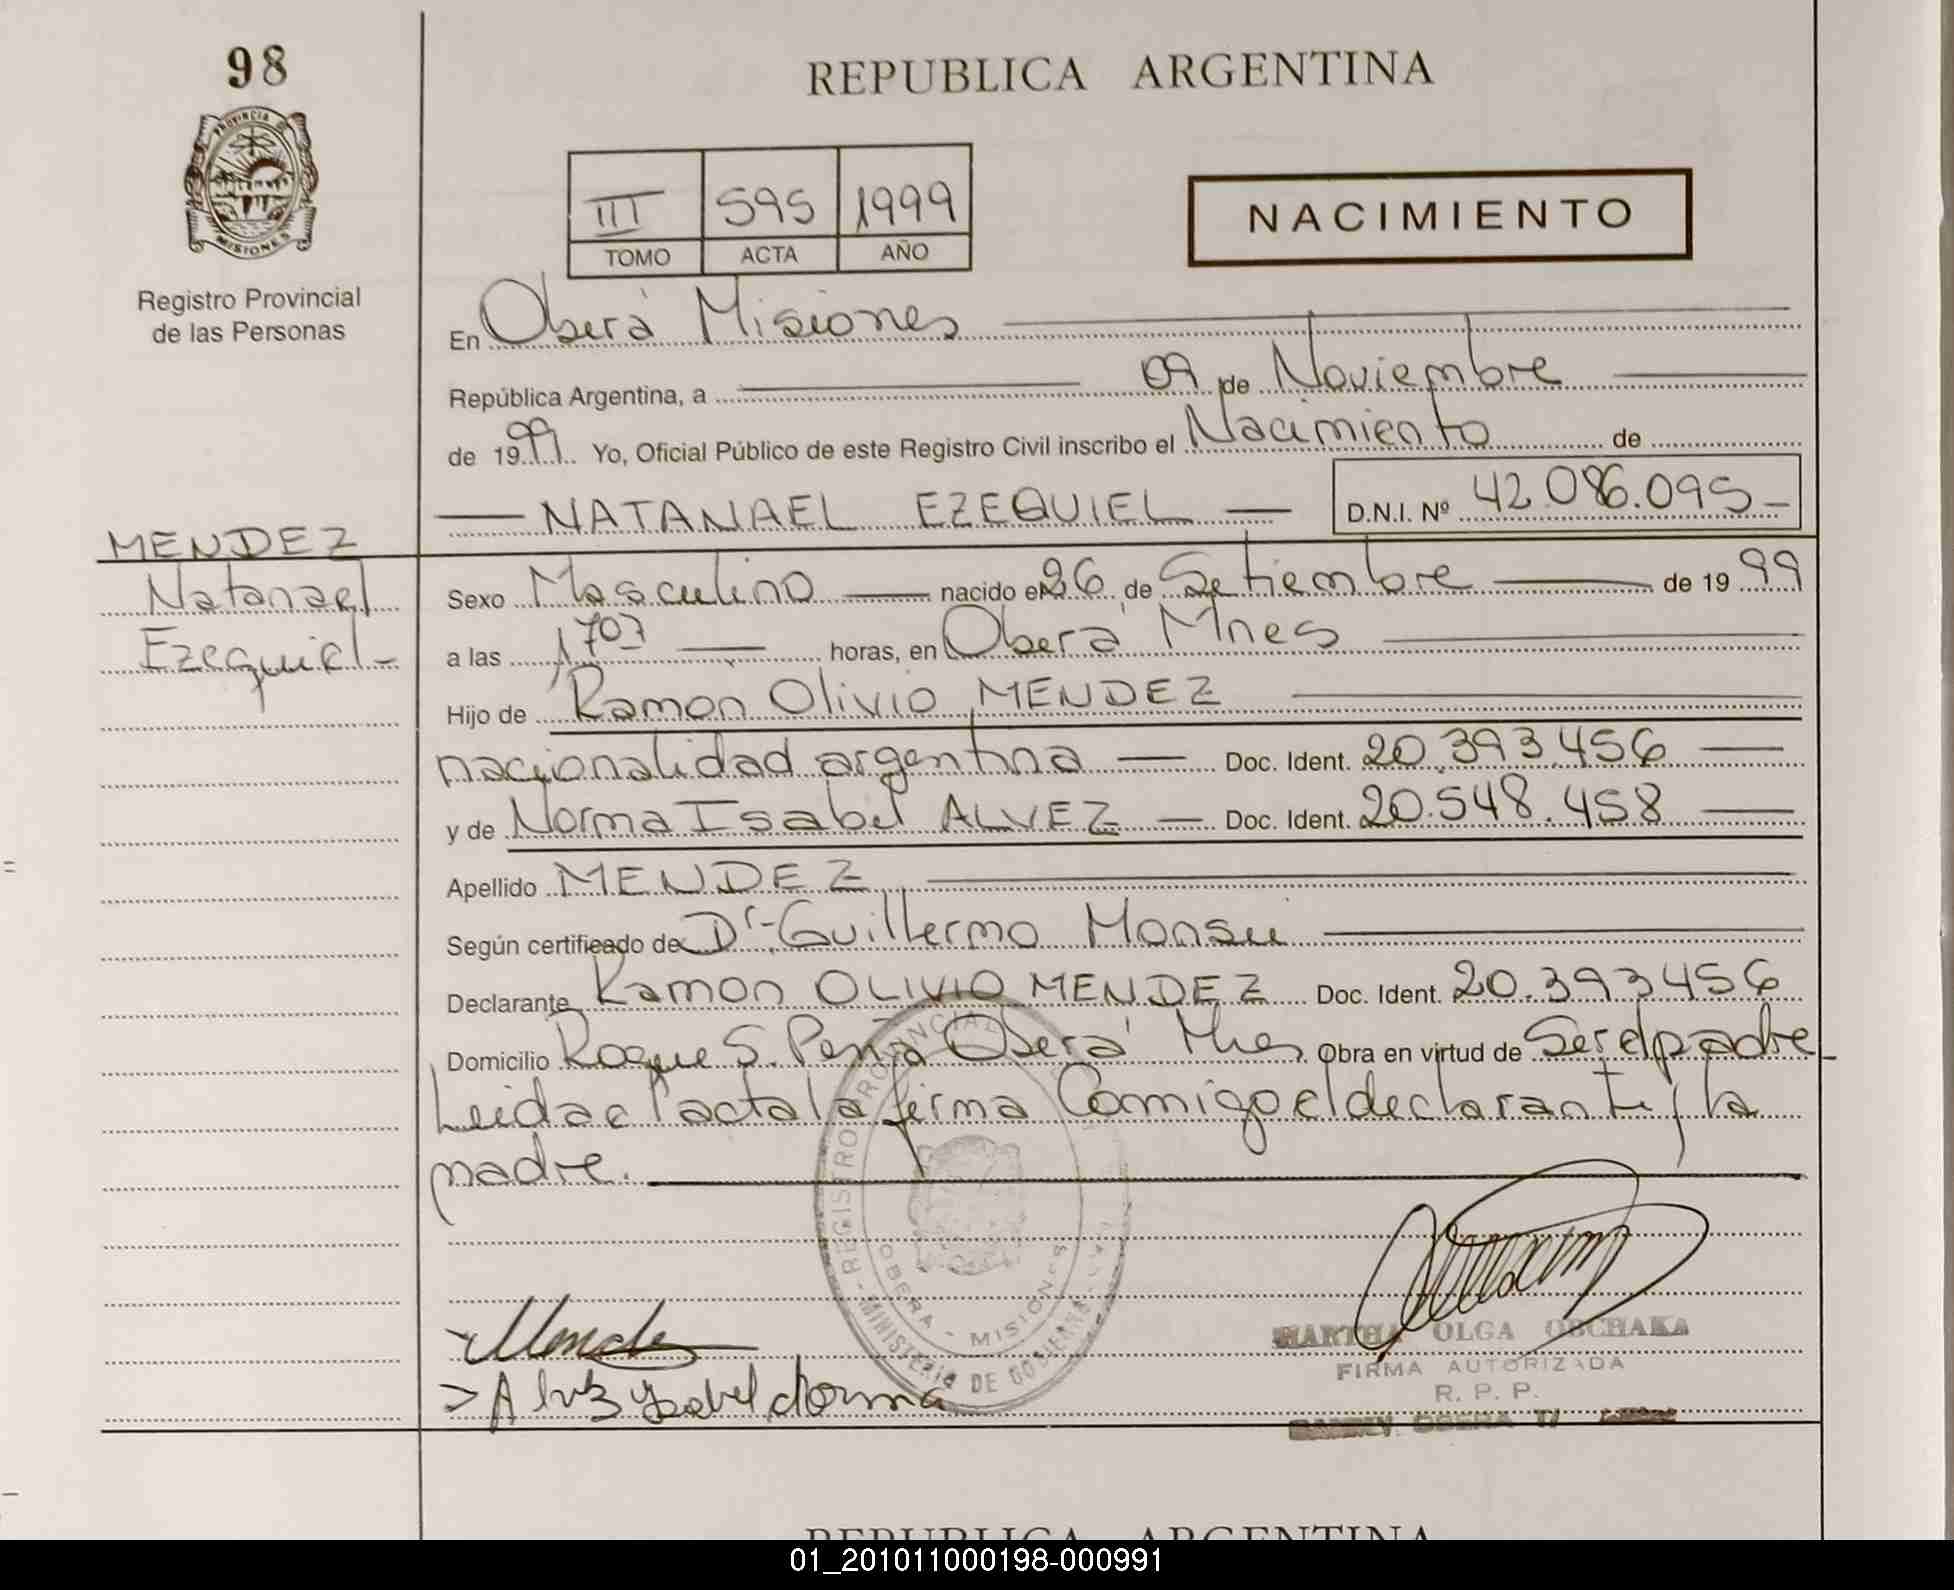 98
REPUBLICA ARGENTINA
PROVINCIA DE
MISIONES
III 595 1999
TOMO ACTA AÑO
NACIMIENTO
Registro Provincial
de las Personas
En Oberá Misiones
República Argentina, a 09 de Noviembre
de 1999. Yo, Oficial Público de este Registro Civil inscribo el Nacimiento de
NATANAEL EZEQUIEL D.N.I. Nº 42.086.095
MENDEZ
Natanael
Ezequiel
Sexo Masculino nacido el 26 de Setiembre de 1999
a las 1703 horas, en Oberá Mnes
Hijo de Ramon Olivio MENDEZ
nacionalidad argentina Doc. Ident. 20.393.456
y de Norma Isabel ALVEZ Doc. Ident. 20.548.458
Apellido MENDEZ
Según certificado de Dr. Guillermo Monsu
Declarante Ramon OLIVIO MENDEZ Doc. Ident. 20.393456
Domicilio Roque S. Peña Oberá Mnes Obra en virtud de Ser el padre
Leida el acta la firma Comigo el declarante y la
madre.
REGISTRO PROVINCIAL
OBERA - MISIONES
MINISTERIO DE GOBIERNO
MARTHA OLGA OBCHAKA
FIRMA AUTORIZADA
R. P. P.
OBERA
Alvez Ysabel Norma
REPUBLICA ARGENTINA
01_201011000198-000991